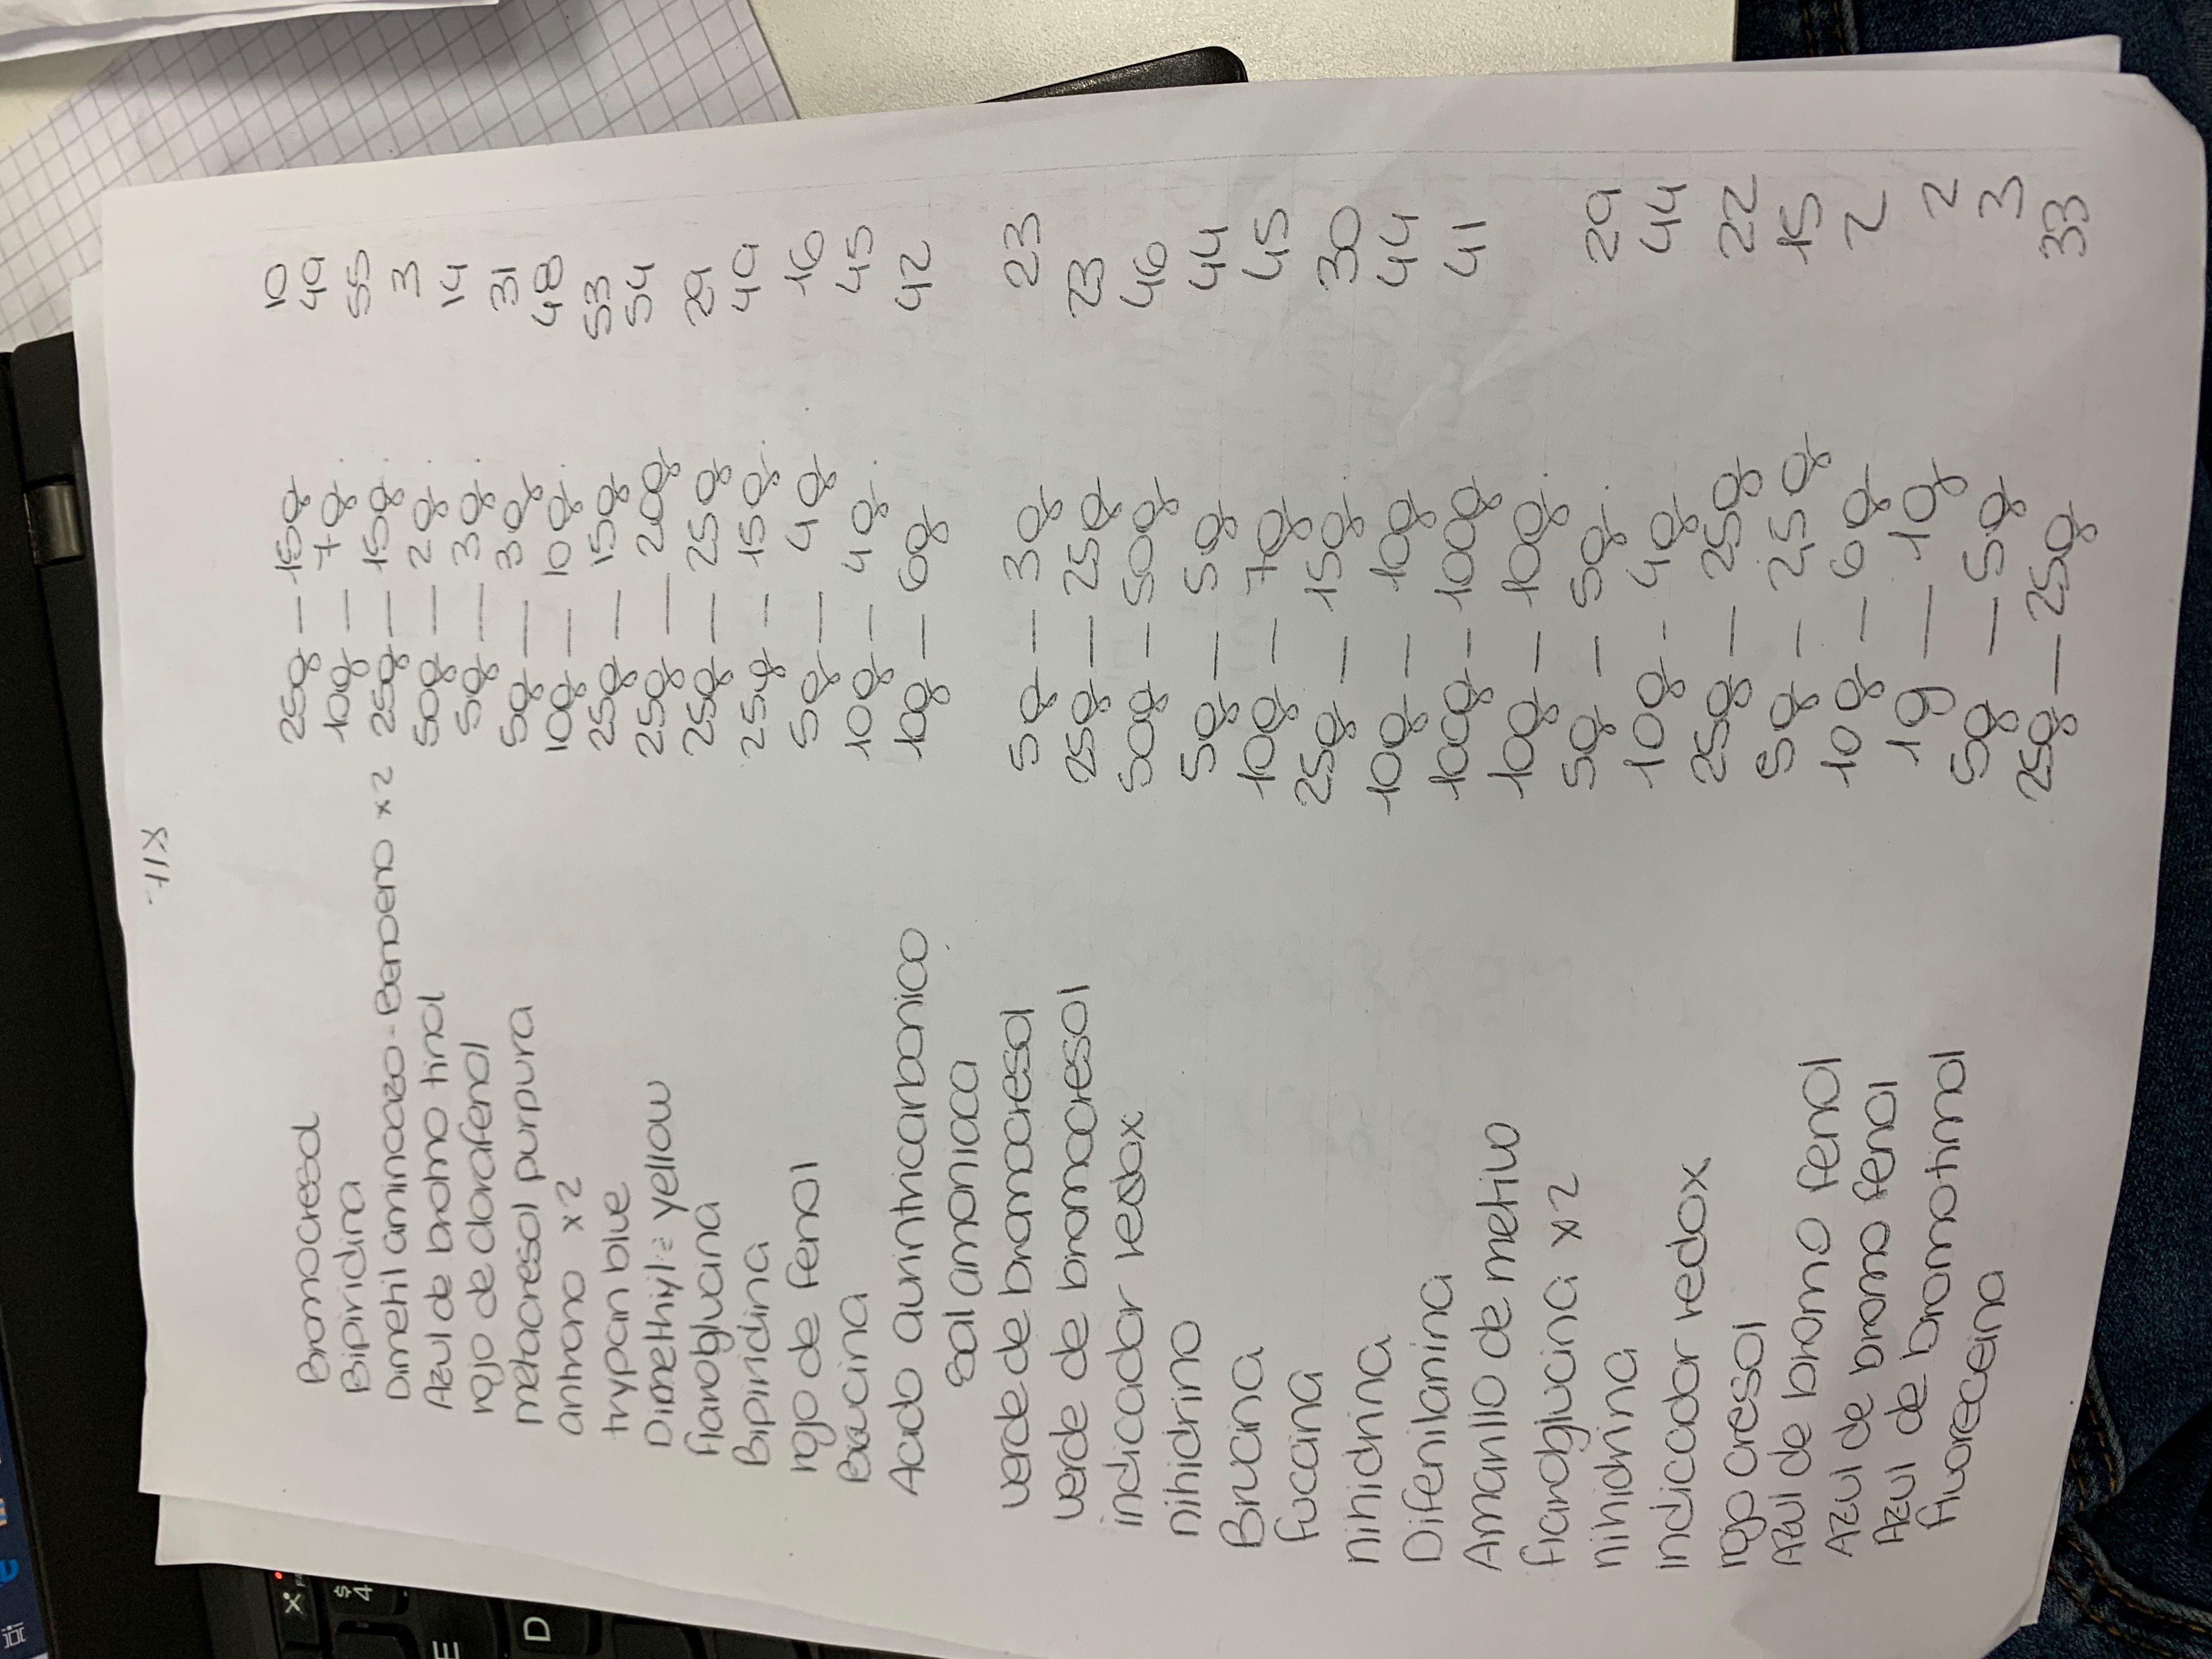 XII
Bromocresol 25g — 15g 10
Bipiridina 10g — 7g. 49
Dimetil aminoazo - Benceno x2 25g — 15g. 55
Azul de bromo timol 50g — 2g. 3
rojo de clorafenol 5g — 3g. 14
metacresol purpura 5g — 3g 31
antrono x2 10g — 10g. 48
trypan blue 25g — 15g 53
Dimethyl = yellow 25g — 20g 54
fluroglucina 25g — 25g 29
Bipiridina 25g — 15g. 49
rojo de fenol 5g — 4g 16
Brucina 10g — 4g. 45
Acido aurintricarbonico 10g — 6g 42
sal amoniaca
verde de bromocresol 5g — 3g 23
verde de bromocresol 25g — 25g 23
indicador redox 50g — 50g 46
nihidrino 5g — 5g 44
Brucina 10g — 7g 45
fuccina 25g — 15g. 30
nihidrina 10g — 10g 44
Difenilanina 100g — 100g 41
Amarillo de metilo 10g — 10g.
fluroglucina x2 5g — 5g. 29
nihidrina 10g - 4g 44
indicador redox 25g — 25g 22
rojo cresol 5g — 2,5g 15
Azul de bromo fenol 10g — 6g 2
Azul de bromo fenol 1g — 1g 2
Azul de bromotimol 5g — 5g 3
fluoreceina 25g — 25g 33
$
4
E
D